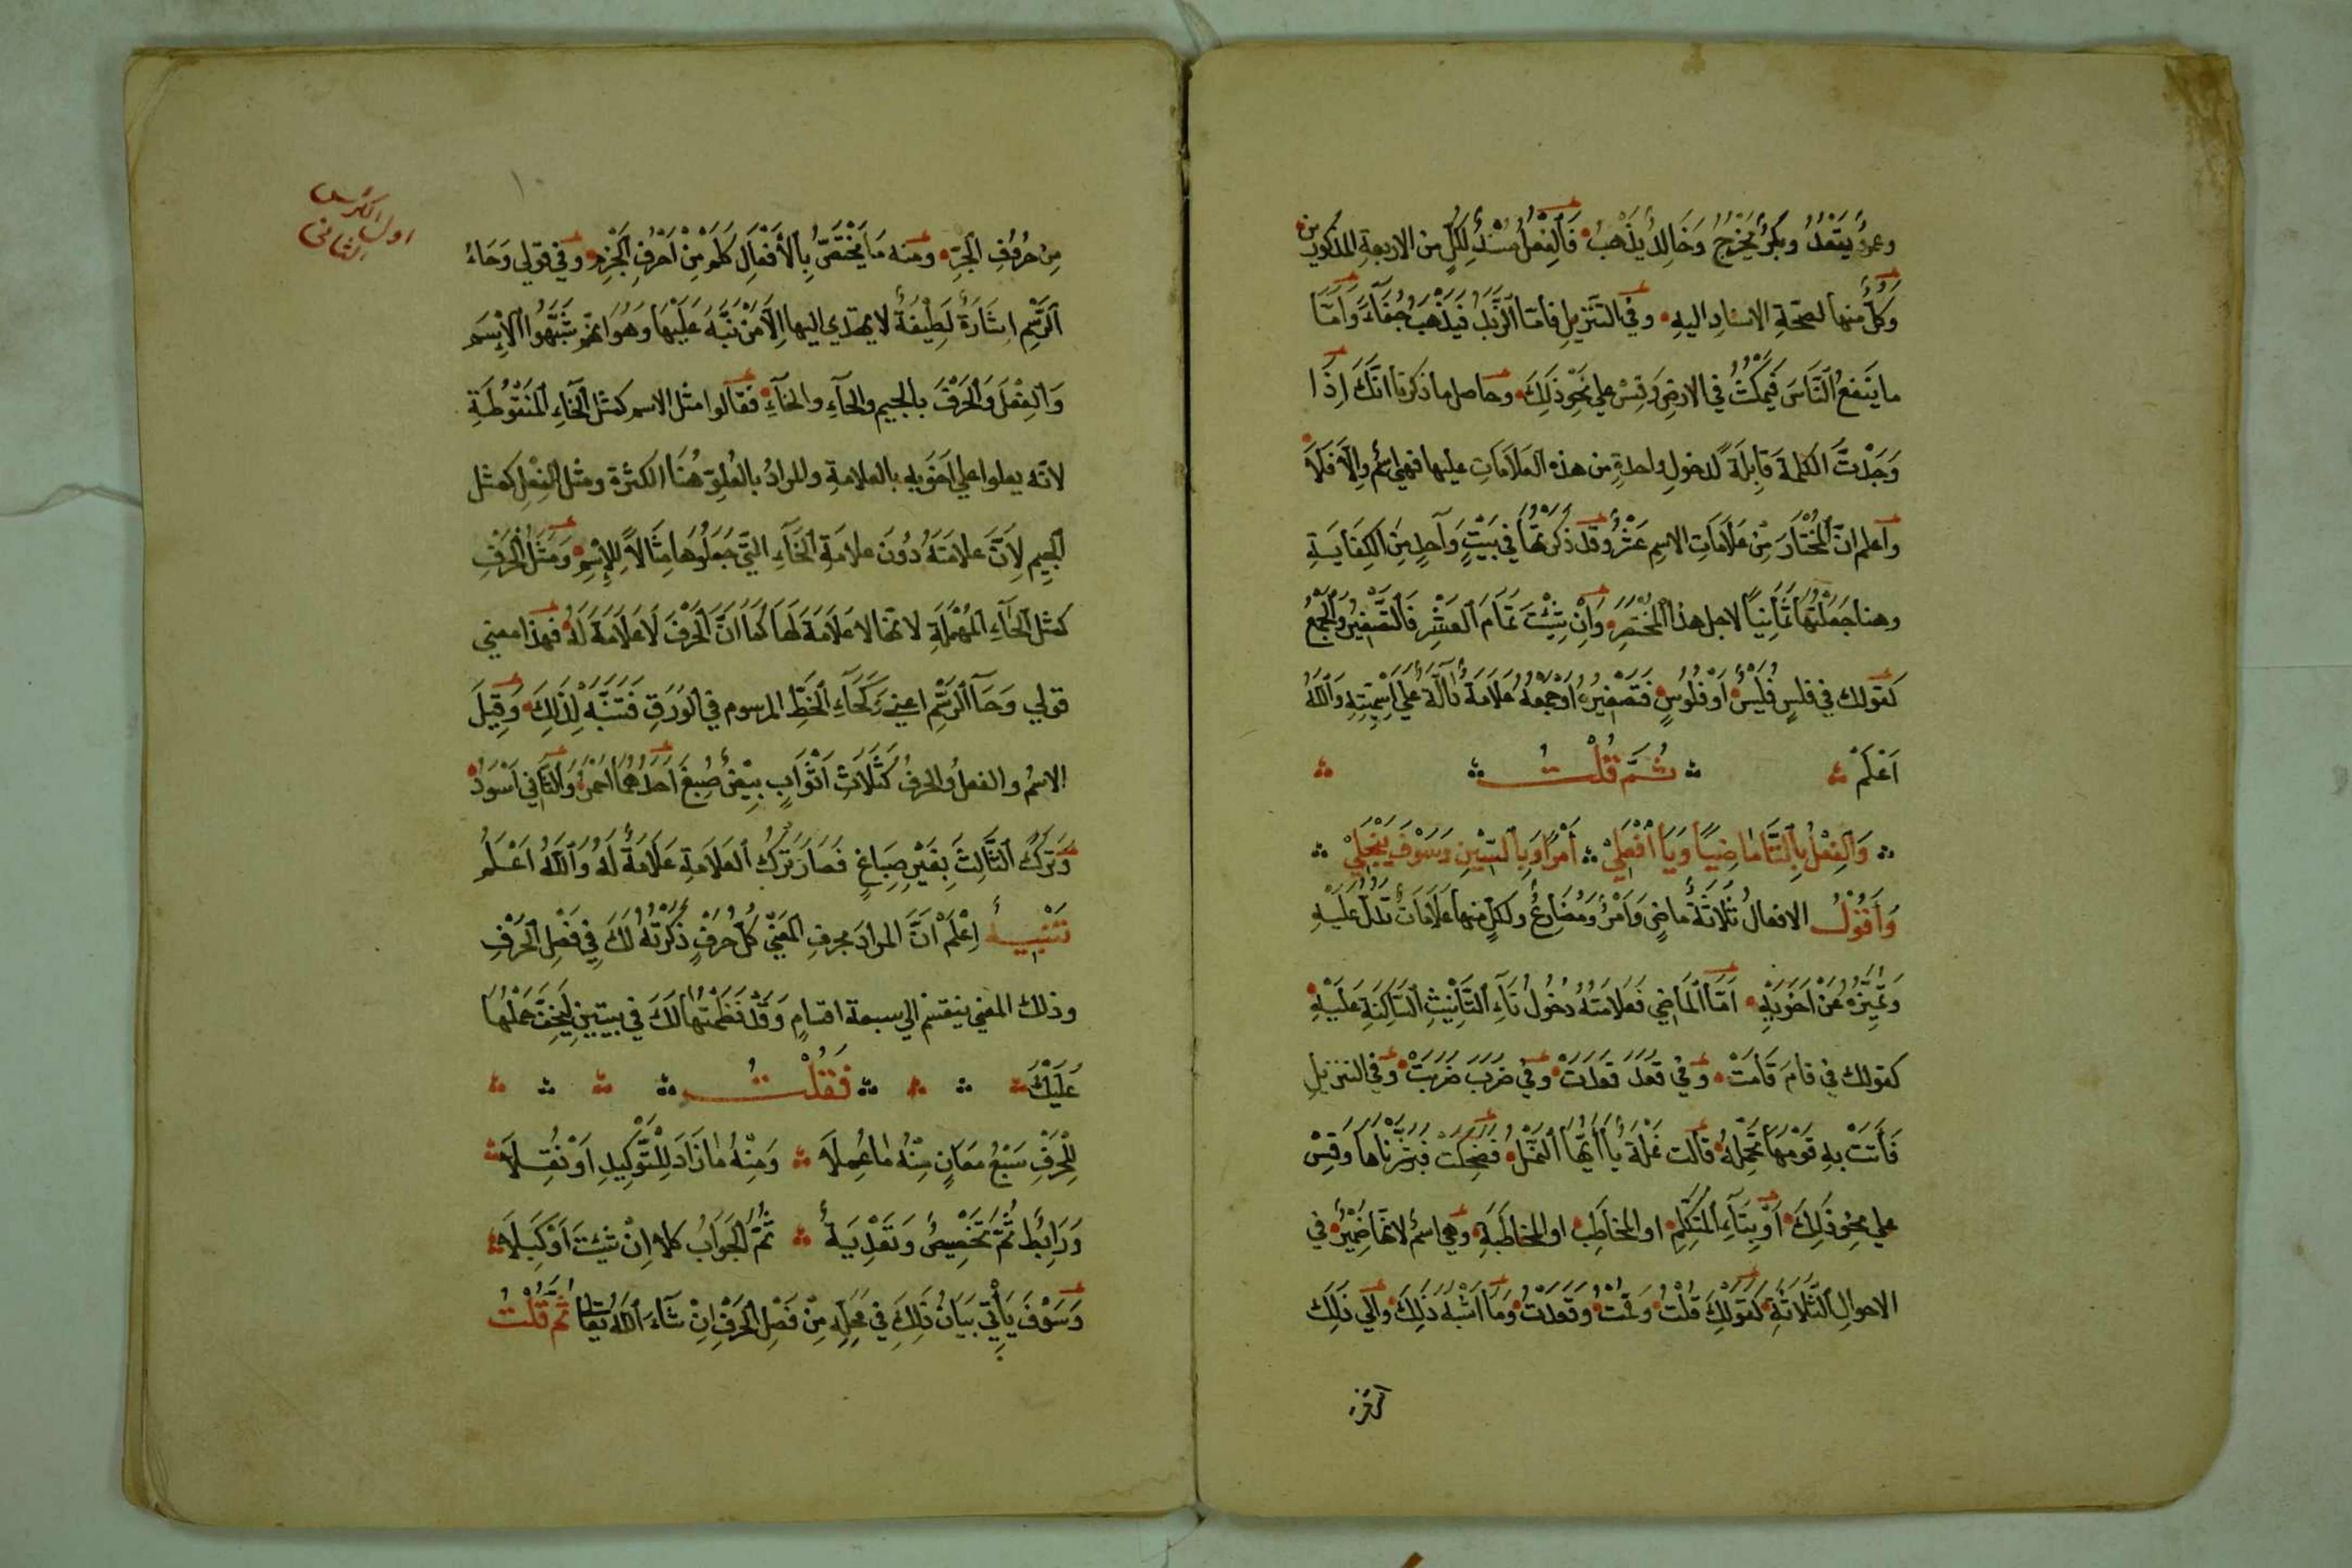 وعمرٌو يَقعُدُ وبكرٌ يخرُجُ وَخَالِدٌ يَذْهَبُ فَالفِعْلُ مُسْنَدٌ لِكُلٍّ من الاربعةِ المذكورين
وَكلٌّ منها لصحّةِ الاسنادِ اليهِ وفي التنزيلِ فأمّا الزَّبَدُ فَيَذْهَبُ جُفَآءً وَأمَّا
ما ينفعُ النَّاسَ فَيَمْكُثُ في الارضِ وَقِسْ علي نحوِ ذَلِكَ وحاصل ما ذكرنا انَّكَ إِذَا
وَجَدْتَّ الكلمةَ قَابِلَةً لدخولِ واحدةٍ من هذه العَلاَمَاتِ عليها فهي اسْمٌ وإلاّ فَلاَ
وَاعلم انّ المُخْتَارَ مِنْ عَلاَمَاتِ الاسمِ عَشْرٌ وقد ذكرتُهَا في بَيْتٍ وَاحدٍ مِن الكِفَايَةِ
وهنا جَعَلْتُهَا ثَمَانِيًا لاجل هذا المُخْتَصَرِ وَإنْ شِئْتَ تَمَامَ العَشْرِ فَالتَّصْغِيرُ وَالجَمْعُ
كقولك في فلسٍ فُلَيْسٌ أوْ فُلُوسٍ فَتَصْغِيرُهُ اوْ جَمْعُهُ عَلاَمَةٌ دَالَّةٌ عَلَي اسْمِيَتِهِ وَاللهُ
أَعْلَمْ ثُمَّ قُلْتُ
وَالفِعْلُ بِالتَّا مَاضِيًا وَيَا افْعَلِيْ أمْرًا وَبِالسِّيْنِ وَسَوْفَ يَنْجَلِيْ
وَأَقُوْلُ الافعالُ ثَلاثَةٌ ماضٍ وَأمْرٌ وَمُضَارِعٌ ولكلٍّ منها عَلاَمَاتٌ تَدُلُّ عَلَيْهِ
وَتُمَيِّزُهُ عَنْ أخَوَيْهِ أمّا المَاضِي فَعَلاَمَتُهُ دُخُولُ تَاءِ التَّأنِيْثِ السَّاكِنَةِ عَلَيْهِ
كقولك في قامَ قَامَتْ وَفي قعَدَ قعَدَتْ وفي ضَرَبَ ضَرَبَتْ وَفي التنزيلِ
فَأتَتْ بهِ قَوْمَهَا تَحْمِلُهُ قَالت نَمْلَةٌ يَا أيُّهَا النَّمْلُ فَضَحِكَتْ فَبَشَّرْنَاهَا وَقِسْ
علي نحوِ ذَلِكَ أوْ بِتَاءِ المُتَكَلِّمِ او المُخَاطَبِ او المخاطَبَةِ وَهي اسمٌ لانّها ضَمِيْرٌ في
الاحوالِ الثَّلاثَةِ كَقَوْلِكَ قُلْتُ وَقُمْتُ وَقعَدْتُ وَمَا اشْبَهَ ذَلِكَ وَالي ذَلِكَ
مِن حُرُوْفِ الجَرِّ ومنه مَا يَخْتَصُّ بِالأفْعَالِ كَلَمْ مِنْ أحْرُفِ الجَزْمِ وَفي قولي وَحَاءُ
الرَّسْمِ اشَارَةٌ لَطِيْفَةٌ لا يهتدي اليها إلاّ مَنْ نَبَّهَ عَلَيْهَا وَهُوَ انّهم شَبَّهُوا الإسْمَ
وَالفِعْلَ وَالحَرْفَ بالجيم والحآءِ والخآءِ فَقَالوا مثل الاسم كمثل الخاءِ المَنْقُوْطَةِ
لانّه يعلوا علي اخَوَيهِ بالعلامةِ والمرادُ بالعُلوِّ هُنَا الكثرة ومثل الفِعْلِ كَمثل
الجيم لِانَّ عَلامَتَهُ دُوْنَ علامَةِ الخَآءِ الَّتي جَعَلُوْهَا مِثَالاً لِلإسْمِ وَمَثَلُ الحَرْفِ
كمثل الحَآءِ المُهْمَلَةِ لانّها لا عَلاَمَةَ لَهَا كَمَا انَّ الحَرْفَ لاَ عَلاَمَةَ لَهُ فهذا معني
قولي وَحَا الرَّسْمِ اعني كَحَآءِ الخَطِّ المرسوم في الوَرَقِ فَتَنَبَّه لِذَلِكَ وَقِيْلَ
الاسمُ والفعلُ والحرفُ كَثَلاَثِ أثْوَابٍ بِيْضٍ صُبِغَ أحَدُهُمَا احْمَرُ وَالثَّاني أسْوَدُ
وَتُرِكَ الثَّالِثُ بِغَيْرِ صِبَاغٍ فَصَارَ تَرْكُ العَلاَمَةِ عَلاَمَةً لَهُ وَاللهُ أعْلَمُ
تَنْبِيْهٌ اِعْلَمْ أنَّ المرادَ بحرفِ المَعْنَي كُلُّ حَرْفٍ ذَكَرْتُهُ لَكَ فِي فَصْلِ الحَرْفِ
وذلك المعني ينقسم الي سبعة اقسامٍ وَقَدْ نَظَمْتُهَا لَكَ في بيتينِ لِيَخِفَّ حَمْلُهَا
عَلَيْكَ فَقُلْتُ
لِلْحَرْفِ سَبْعُ مَعَانٍ مِنْهُ مَا عُمِلاَ وَمِنْهُ مَا زَادَ لِلتَّوْكِيْدِ أوْ نُقِلاَ
وَرَابِطٌ ثُمَّ تَخْصِيْصٌ وَتَعْدِيَةٌ ثُمَّ الجَوَابُ كلا إنْ شِئْتَ أوْ كَبَلاَ
وَسَوْفَ يَأْتِي بَيَانُ ذَلِكَ فِي مَحَلِّهِ مِنْ فَصْلِ الحَرْفِ إنْ شَآءَ اللهُ تعَالَى ثُمَّ قُلْتُ